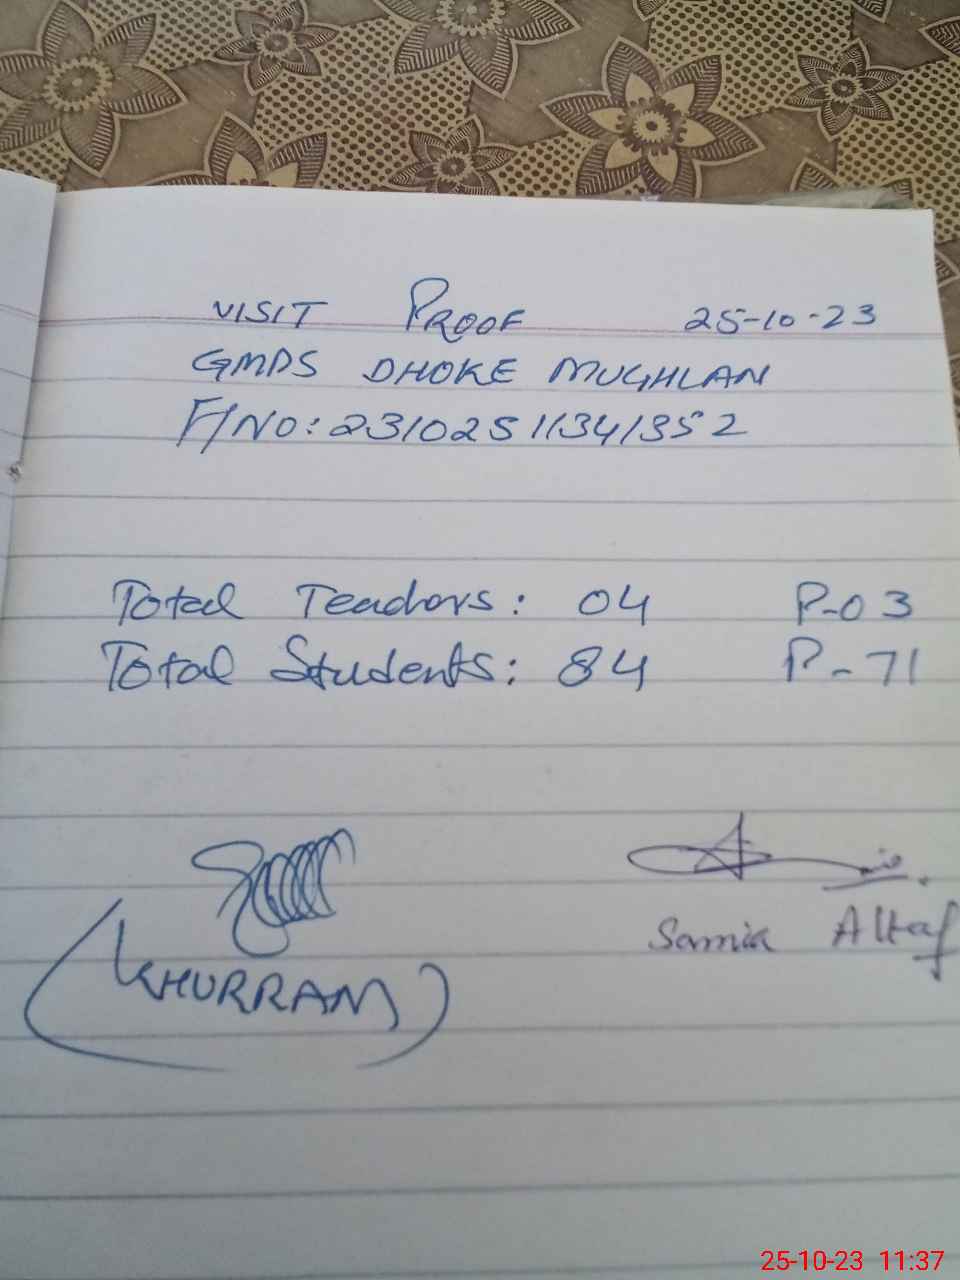 VISIT PROOF 25-10-23
GMPS DHOKE MUGHLAN
F/NO: 23102511341352
Total Teachers: 04 P-03
Total Students: 84 P-71
(KHURRAM)
Samia Altaf
25-10-23 11:37